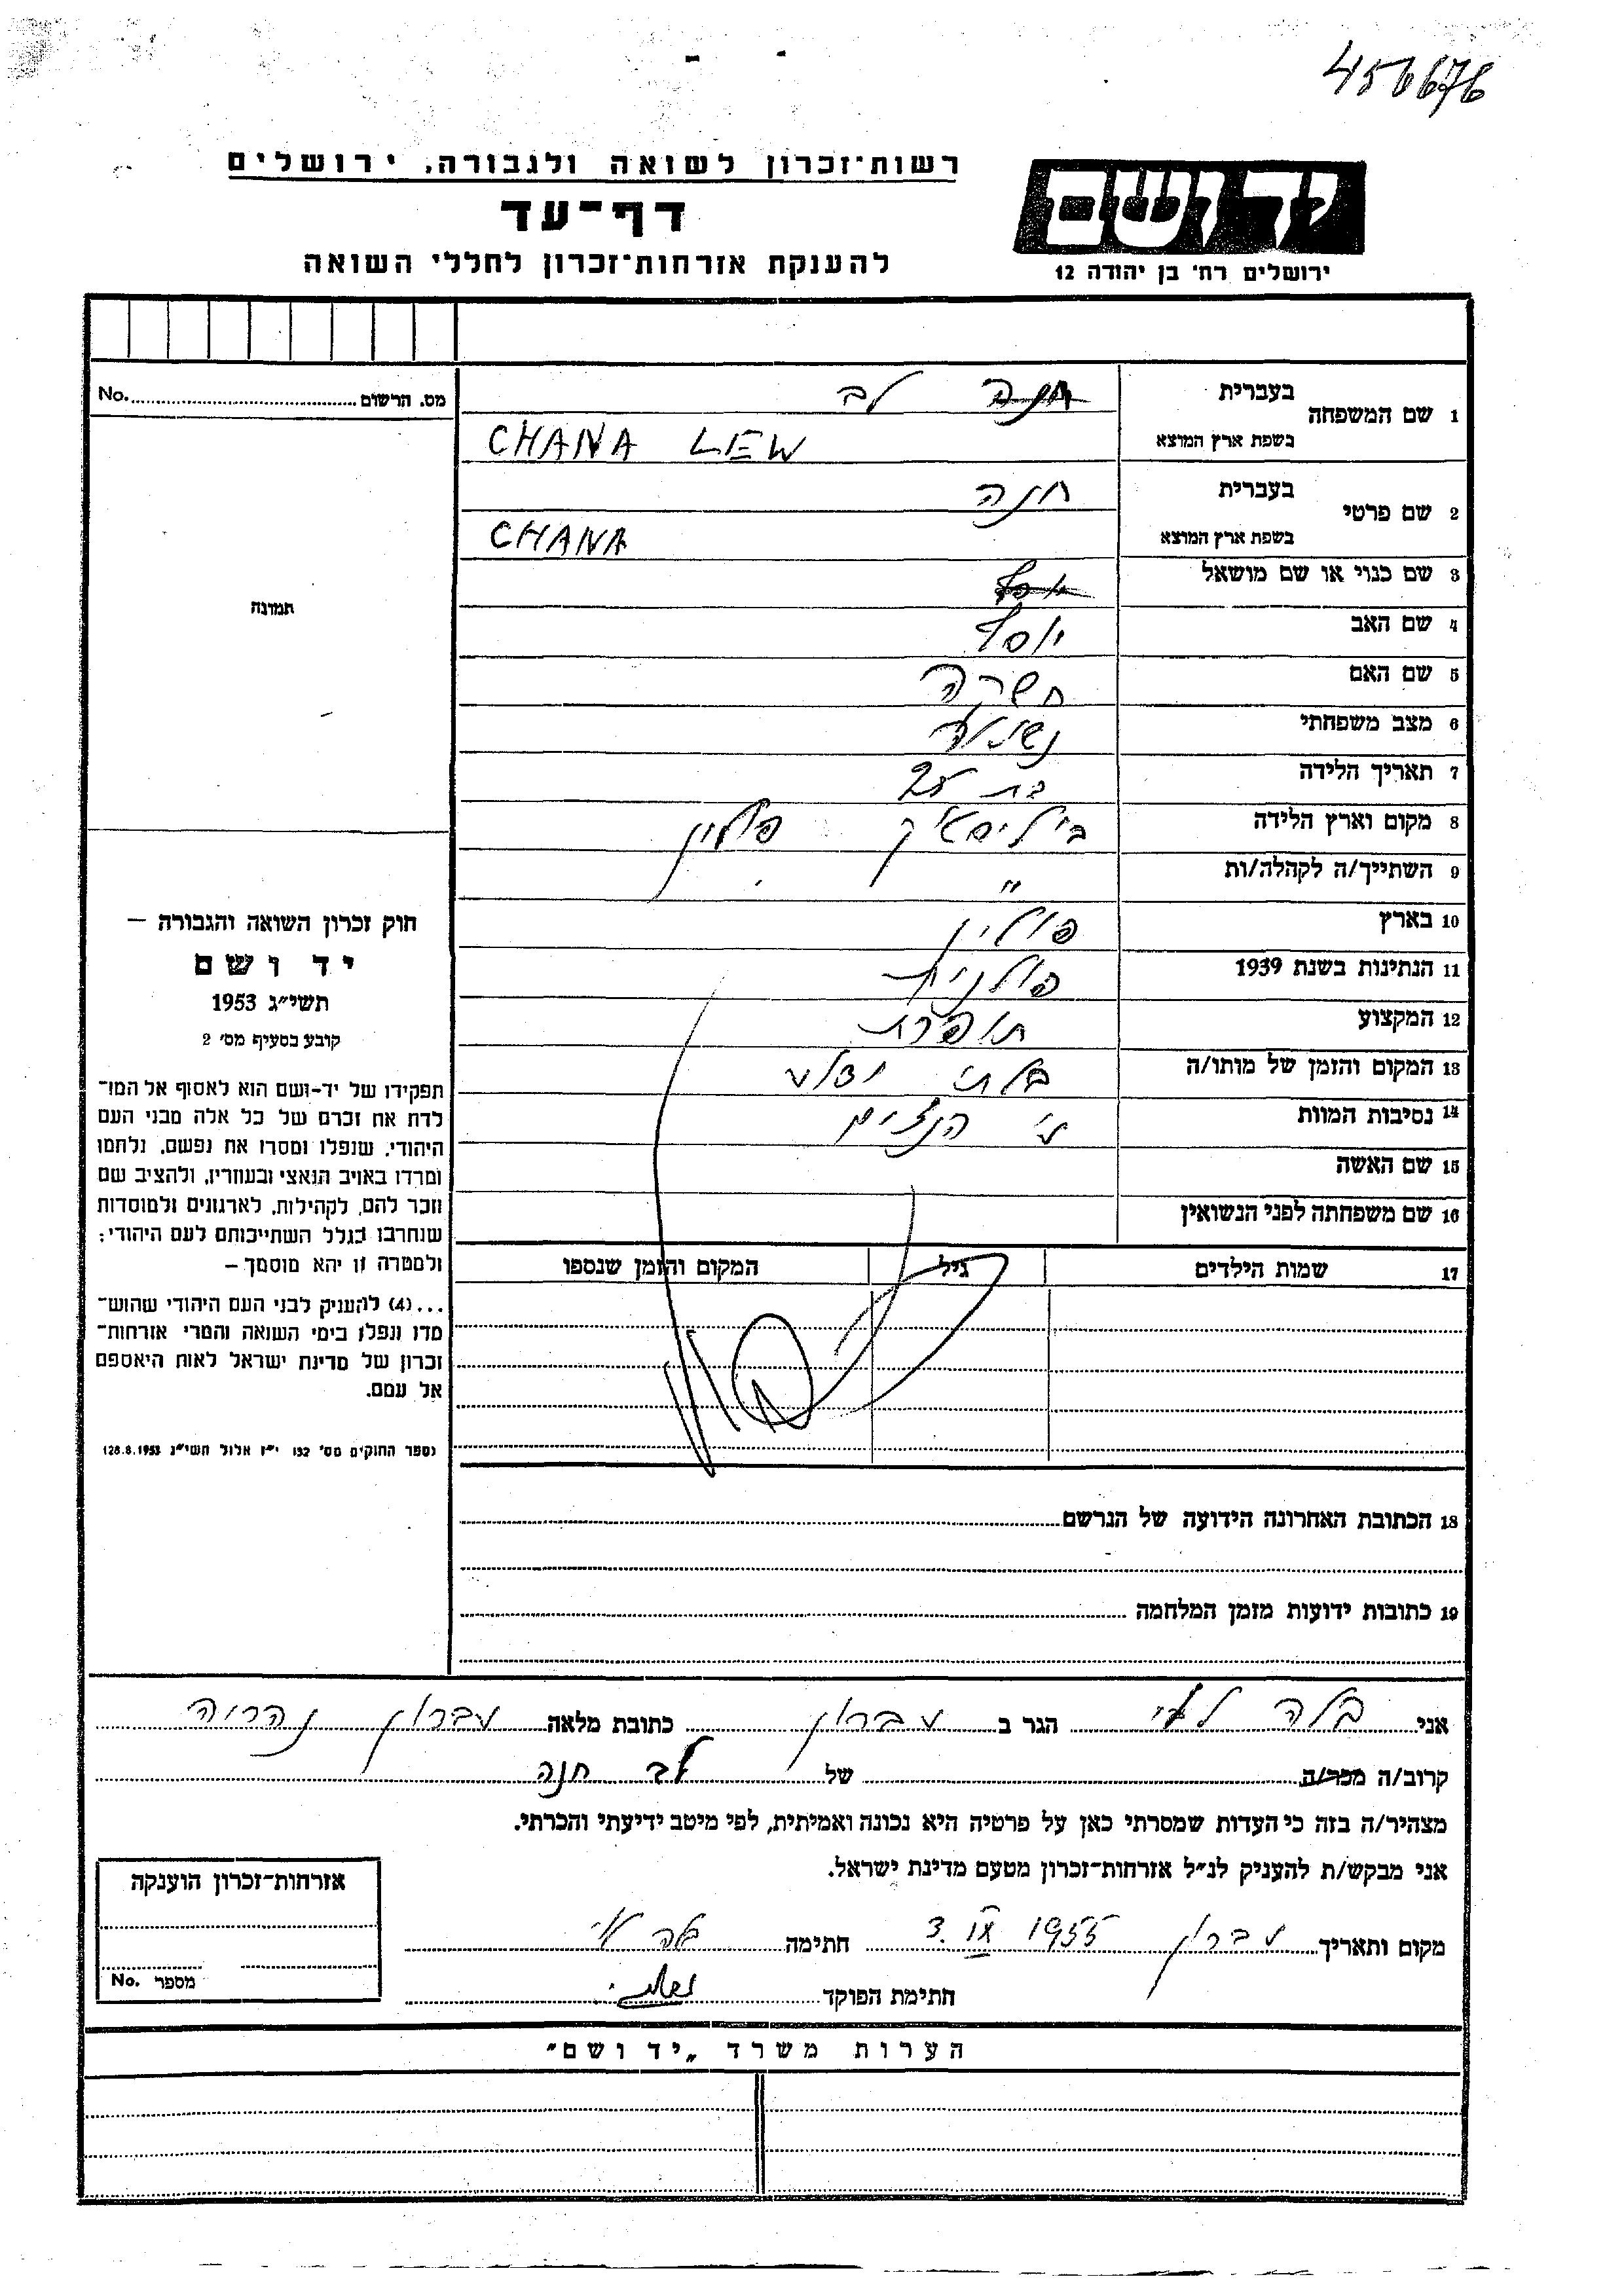 456676
רשות־זכרון לשואה ולגבורה, ירושלים
דף־עד
להענקת אזרחות־זכרון לחללי השואה
יד ושם
ירושלים רח׳ בן יהודה 12
מס. הרשום No.
1 שם המשפחה בעברית חנה לב
בשפת ארץ המוצא CHANA LEW
2 שם פרטי בעברית חנה
בשפת ארץ המוצא CHANA
3 שם כנוי או שם מושאל
4 שם האב יוסף
5 שם האם
6 מצב משפחתי
7 תאריך הלידה בת
8 מקום וארץ הלידה פולין
9 השתייך/ה לקהלה/ות "
10 בארץ פולין
11 הנתינות בשנת 1939 פולנית
12 המקצוע תופרת
13 המקום והזמן של מותו/ה בלתי ידוע
14 נסיבות המוות ע״י הנצים
15 שם האשה
16 שם משפחתה לפני הנשואין
17 שמות הילדים גיל המקום והזמן שנספו
18 הכתובת האחרונה הידועה של הנרשם
19 כתובות ידועות מזמן המלחמה
תמונה
חוק זכרון השואה והגבורה —
יד ושם
תשי״ג 1953
קובע בסעיף מס׳ 2
תפקידו של יד-ושם הוא לאסוף אל המו־
לדת את זכרם של כל אלה מבני העם
היהודי, שנפלו ומסרו את נפשם, נלחמו
ומרדו באויב הנאצי ובעוזריו, ולהציב שם
וזכר להם, לקהילות, לארגונים ולמוסדות
שנחרבו בגלל השתייכותם לעם היהודי;
ולמטרה זו יהא מוסמך —
...(4) להעניק לבני העם היהודי שהוש־
מדו ונפלו בימי השואה והמרי אזרחות־
זכרון של מדינת ישראל לאות היאספם
אל עמם.
(ספר החוקים מס׳ 132 י״ז אלול תשי״ג 28.8.1953)
אני בלה הגר ב מברון כתובת מלאה מברון נהריה
קרוב/ה מכר/ה של לב חנה
מצהיר/ה בזה כי העדות שמסרתי כאן על פרטיה היא נכונה ואמיתית, לפי מיטב ידיעתי והכרתי.
אני מבקש/ת להעניק לנ״ל אזרחות־זכרון מטעם מדינת ישראל.
מקום ותאריך מברון 3. IX 1955 חתימה
חתימת הפוקד
אזרחות־זכרון הוענקה
מספר No.
הערות משרד „יד ושם״